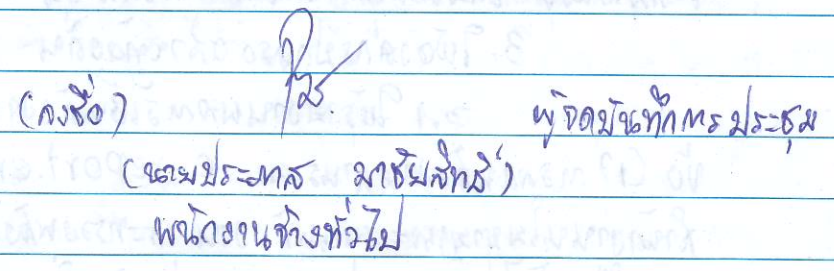 (ลงชื่อ) ผู้จดบันทึกการประชุม
(นายประภาส มาชัยสิทธิ์)
พนักงานช่างทั่วไป